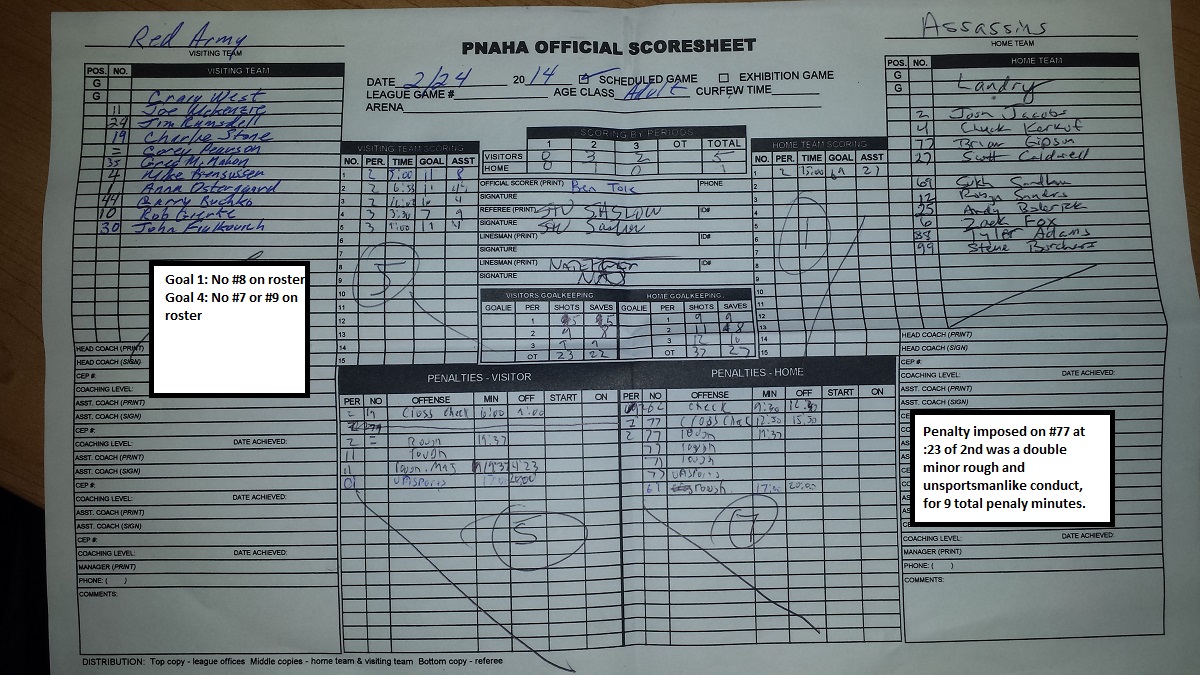 Red Army
VISITING TEAM
PNAHA OFFICIAL SCORESHEET
Assassins
HOME TEAM
DATE 2/24 2014 SCHEDULED GAME EXHIBITION GAME
LEAGUE GAME # AGE CLASS Adult CURFEW TIME
ARENA
POS. NO. VISITING TEAM
G
G Craig West
11 Joe McKenzie
24 Jim Ramsdell
19 Charlie Stone
= Corey Pearson
35 Greg McMahon
4 Mike Brensussen
1 Anna Ostergaard
44 Garry Buchko
10 Rob Gierke
30 John Fialkovich
Goal 1: No #8 on roster
Goal 4: No #7 or #9 on
roster
HEAD COACH (PRINT)
HEAD COACH (SIGN)
CEP #:
COACHING LEVEL:
ASST. COACH (PRINT)
ASST. COACH (SIGN)
CEP #:
COACHING LEVEL: DATE ACHIEVED:
ASST. COACH (PRINT)
ASST. COACH (SIGN)
CEP #:
COACHING LEVEL: DATE ACHIEVED:
ASST. COACH (PRINT)
ASST. COACH (SIGN)
CEP #:
COACHING LEVEL: DATE ACHIEVED:
MANAGER (PRINT)
PHONE: ( )
COMMENTS:
VISITING TEAM SCORING
NO. PER. TIME GOAL ASST
1 2 5:00 11 8
2 2 6:53 11
3 2 4
4 3 3:30 7 9
5 3 1:00 11 4
6
7
8
9
10
11
12
13
14
15
5
SCORING BY PERIODS
1 2 3 OT TOTAL
VISITORS 0 3 2 5
HOME 0 1 0 1
OFFICIAL SCORER (PRINT) Ben Tole PHONE
SIGNATURE
REFEREE (PRINT) ID#
SIGNATURE
LINESMAN (PRINT) ID#
SIGNATURE
LINESMAN (PRINT) ID#
SIGNATURE
VISITORS GOALKEEPING HOME GOALKEEPING
GOALIE PER SHOTS SAVES GOALIE PER SHOTS SAVES
1 5 5 1 9 9
2 9 8 2 11 8
3 9 9 3 12 10
OT 23 22 OT 32 27
HOME TEAM SCORING
NO. PER. TIME GOAL ASST
1 2 15:00 69 27
2
3
4
5
6
7
8
9
10
11
12
13
14
15
1
POS. NO. HOME TEAM
G
G Landry
2 Josh Jacobs
4 Chuck Kerkof
77 Brian Gipson
27 Scott Caldwell
69 Sukh Sandhu
12 Sandra
25 Andy
6 Zack Fox
88 Tyler Adams
99 Steve Borchers
HEAD COACH (PRINT)
HEAD COACH (SIGN)
CEP #:
COACHING LEVEL: DATE ACHIEVED:
ASST. COACH (PRINT)
ASST. COACH (SIGN)
Penalty imposed on #77 at
:23 of 2nd was a double
minor rough and
unsportsmanlike conduct,
for 9 total penaly minutes.
CEP #:
COACHING LEVEL: DATE ACHIEVED:
MANAGER (PRINT)
PHONE: ( )
COMMENTS:
PENALTIES - VISITOR
PER NO OFFENSE MIN OFF START ON
= 19 Cross check 6:00 9:00
2 = Rough 19:37
11 rough
11 rough. Maj 19:37 4:23
unsports 17:00 20:00
5
PENALTIES - HOME
PER NO OFFENSE MIN OFF START ON
check 9:30 12:30
2 77 Cross check 12:30 15:30
2 77 rough 19:37
77 rough
77 rough
77 unsports
61 rough 17:00 20:00
7
DISTRIBUTION: Top copy - league offices Middle copies - home team & visiting team Bottom copy - referee